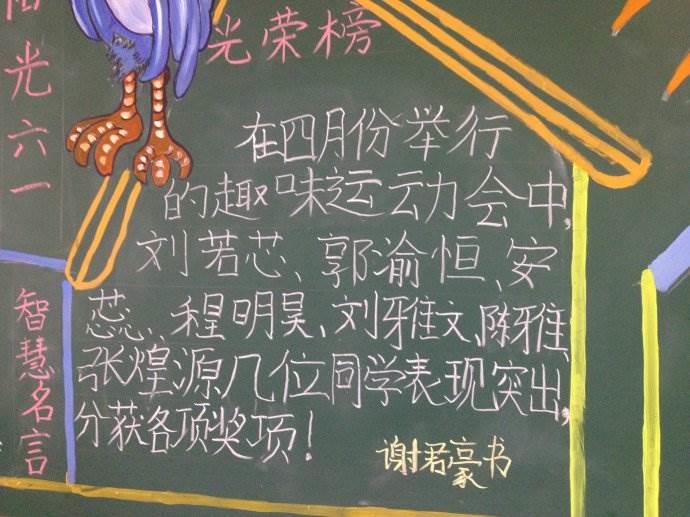 光荣榜
在四月份举行
的趣味运动会中,
刘若芯、郭渝恒、安
蕊、程明昊、刘雅文、陈雅、
张煌源几位同学表现突出,
分获各项奖项!
谢君豪书
光六一
智慧名言